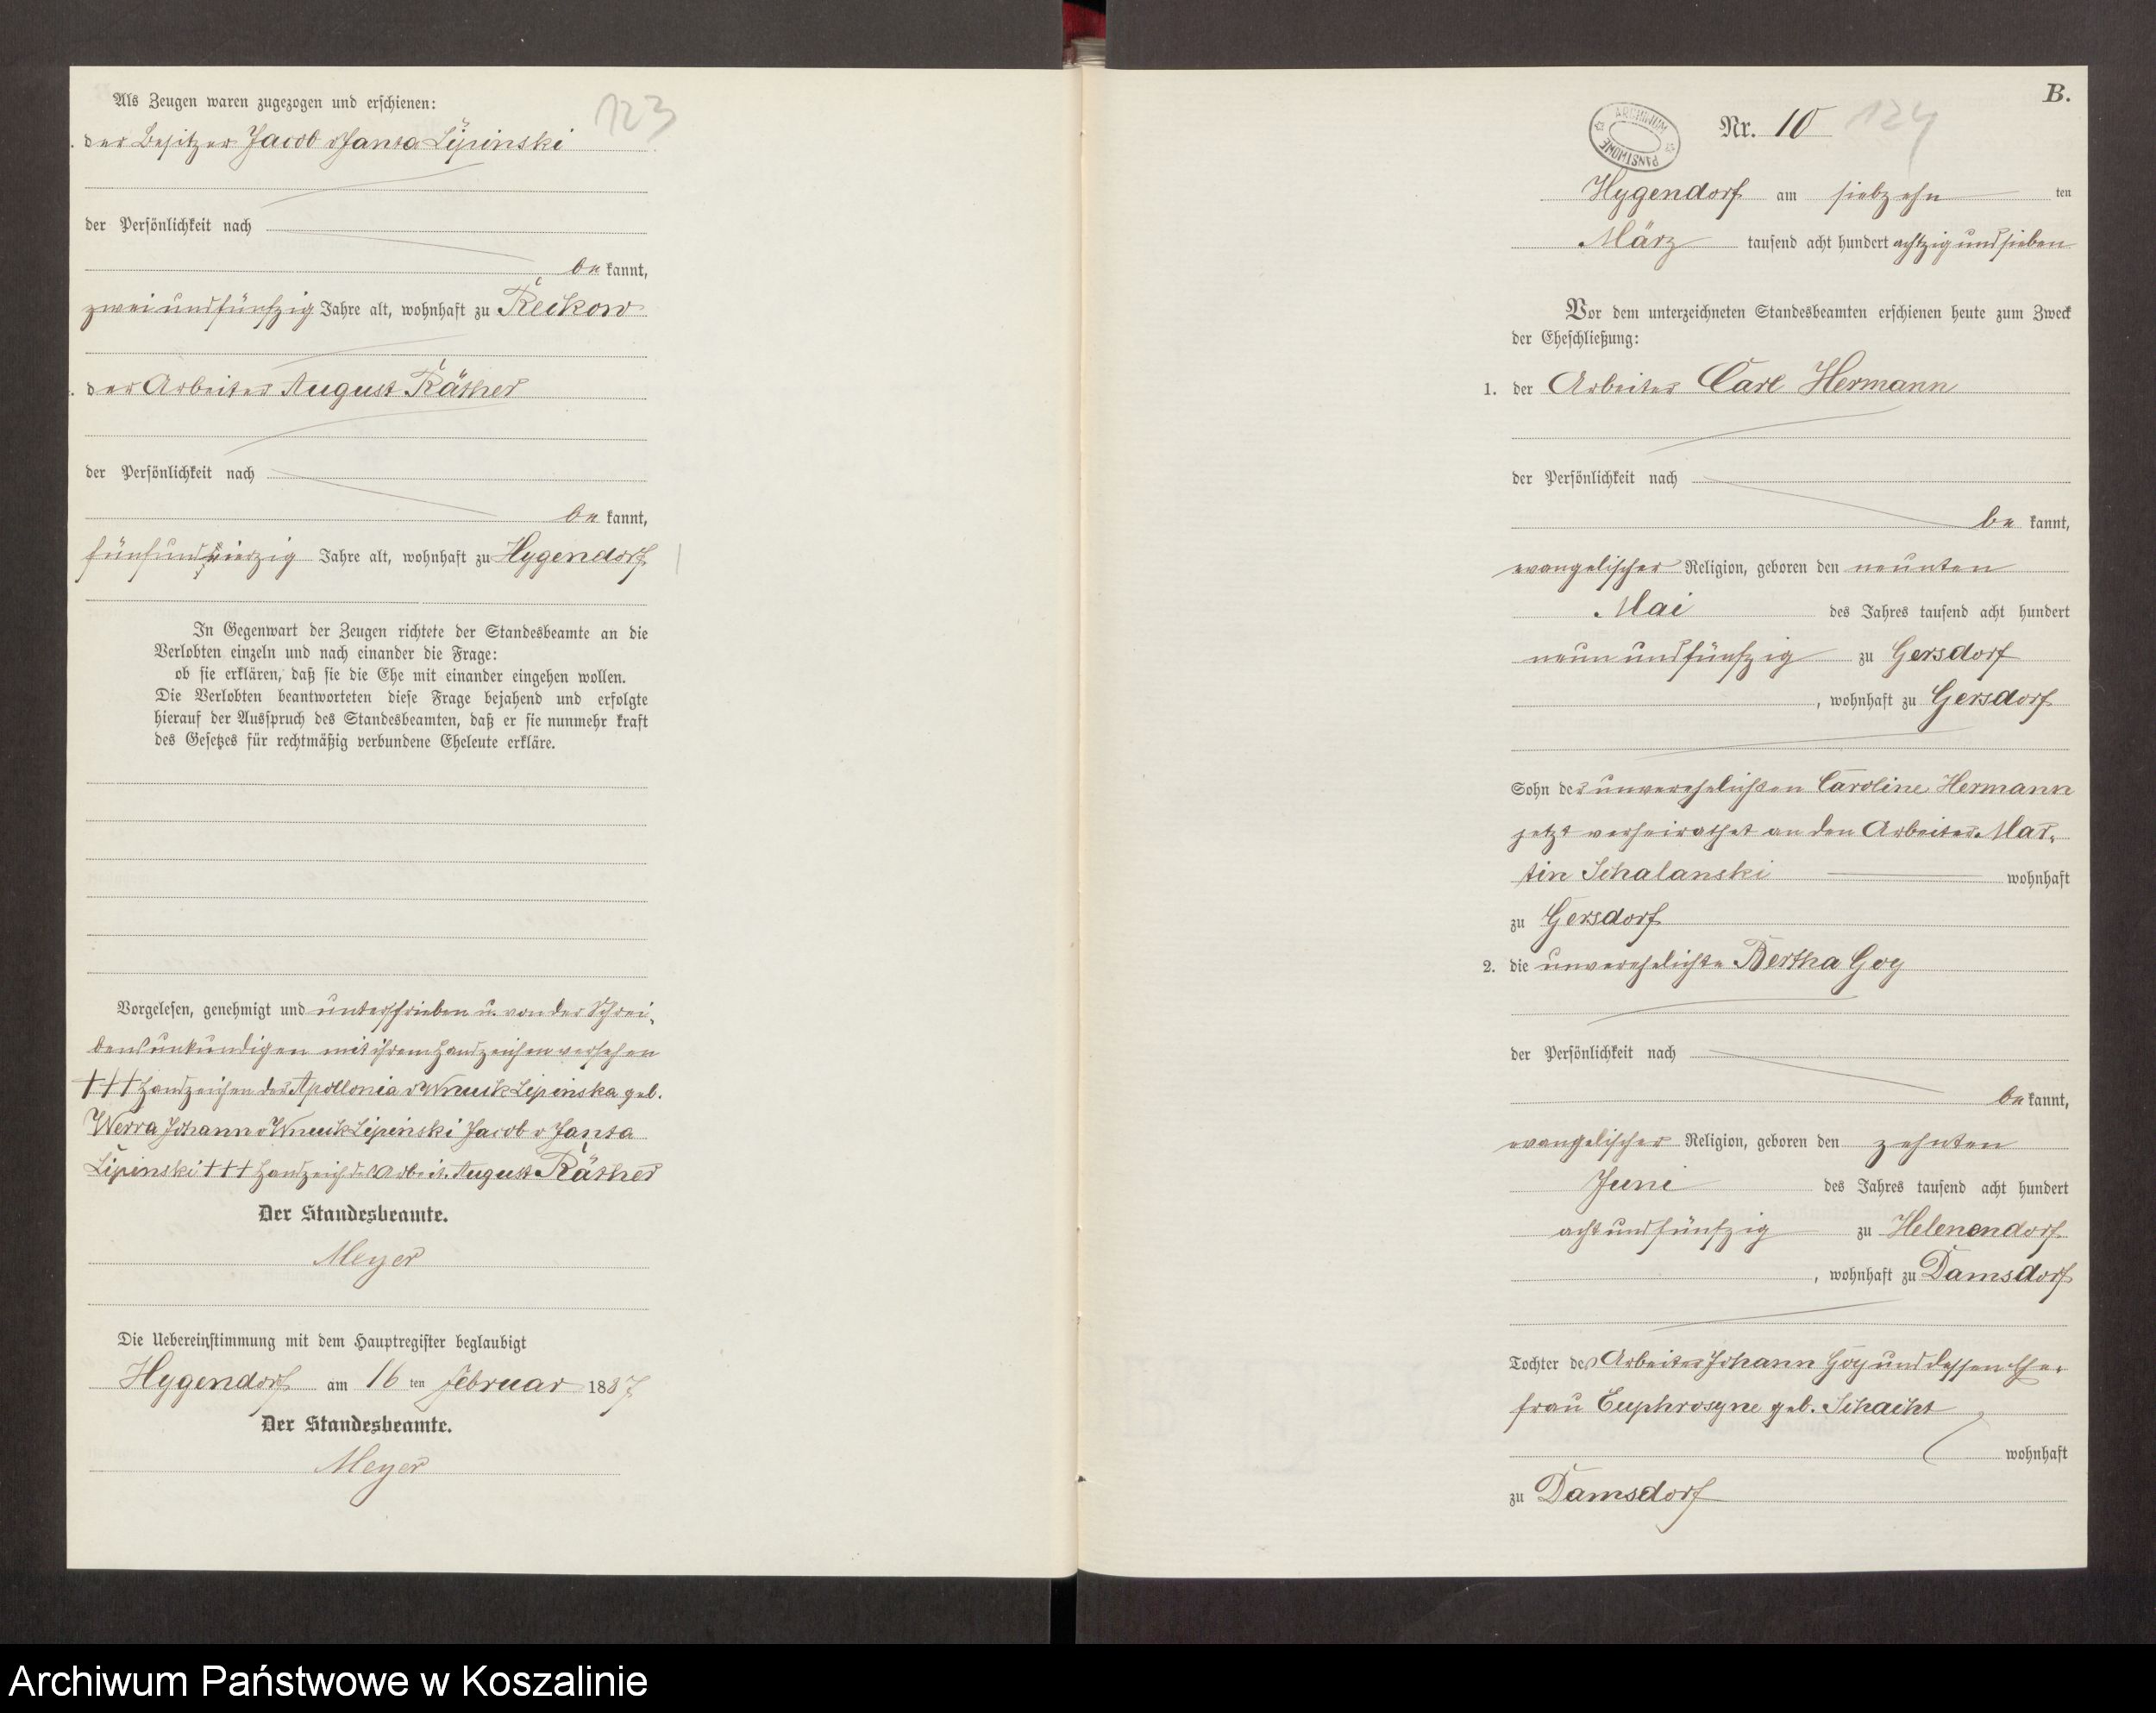 Als Zeugen waren zugezogen und erschienen:
123
der Besitzer Jacob v Janta Lipinski
der Persönlichkeit nach
be kannt,
zweiundfünfzig Jahre alt, wohnhaft zu Reckow
der Arbeiter August Räther
der Persönlichkeit nach
be kannt,
fünfundvierzig Jahre alt, wohnhaft zu Hygendorf
In Gegenwart der Zeugen richtete der Standesbeamte an die
Verlobten einzeln und nach einander die Frage:
ob sie erklären, daß sie die Ehe mit einander eingehen wollen.
Die Verlobten beantworteten diese Frage bejahend und erfolgte
hierauf der Ausspruch des Standesbeamten, daß er sie nunmehr kraft
des Gesetzes für rechtmäßig verbundene Eheleute erkläre.
Vorgelesen, genehmigt und unterschrieben u. von der Schrei-
bensunkundigen mit ihrem Handzeichen versehen
+++ Handzeichen der Apollonia v Wnuck Lipinska geb.
Werra Johann v Wnuck Lipinski Jacob v Janta
Lipinski +++ Handzeich des Arbeit. August Räther
Der Standesbeamte.
Meyer
Die Uebereinstimmung mit dem Hauptregister beglaubigt
Hygendorf am 16 ten Februar 1887
Der Standesbeamte.
Meyer
B.
ARCHIWUM PAŃSTWOWE
Nr. 10 124
Hygendorf am siebzehn ten
März tausend acht hundert achtzig und sieben
Vor dem unterzeichneten Standesbeamten erschienen heute zum Zweck
der Eheschließung:
1. der Arbeiter Carl Hermann
der Persönlichkeit nach
be kannt,
evangelischer Religion, geboren den neunten
Mai des Jahres tausend acht hundert
neun und fünfzig zu Gersdorf
, wohnhaft zu Gersdorf
Sohn der unverehelichten Caroline Hermann
jetzt verheirathet an den Arbeiter Mar-
tin Schalanski wohnhaft
zu Gersdorf
2. die unverehelichte Bertha Goy
der Persönlichkeit nach
be kannt,
evangelischer Religion, geboren den zehnten
Juni des Jahres tausend acht hundert
acht und fünfzig zu Helenendorf
, wohnhaft zu Damsdorf
Tochter des Arbeiter Johann Goy und dessen Ehe-
frau Euphrosyne geb. Schacht
wohnhaft
zu Damsdorf
Archiwum Państwowe w Koszalinie